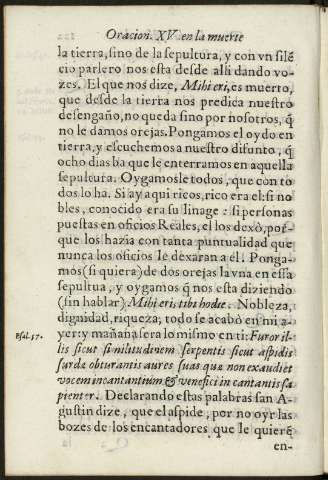 Oracion. XV. en la muerte
la tierra, sino de la sepultura, y con vn silẽ
cio parlero nos esta desde alli dando vo-
zes. El que nos dize, Mihi eri, es muerto,
que desde la tierra nos predica nuestro
desengaño, no queda sino por nosotros, q̃
no le damos orejas. Pongamos el oydo en
tierra, y escuchemos a nuestro difunto, q̃
ocho dias ha que le enterramos en aquella
sepultura. Oygamosle todos, que con to
dos lo ha. Si ay aqui ricos, rico era el: si no
bles, conocido era su linage: si personas
puestas en oficios Reales, el los dexò, por-
que los hazia con tanta puntualidad que
nunca los oficios le dexaran a èl. Ponga-
mos (si quiera) de dos orejas la vna en essa
sepultua, y oygamos q̃ nos esta diziendo
(sin hablar) Mihi eri, tibi hodie. Nobleza,
dignidad, riqueza, todo se acabò en mi a-
yer: y mañana sera lo mismo en ti: Furor il-
Psal. 57.
lis sicut similitudinem serpentis sicut aspidis
surdæ obturantis aures suas quæ non exaudiet
vocem incantantium & venefici incantantis sa
pienter. Declarando estas palabras san A-
gustin dize, que el aspide, por no oyr las
bozes de los encantadores que le quierẽ
en-